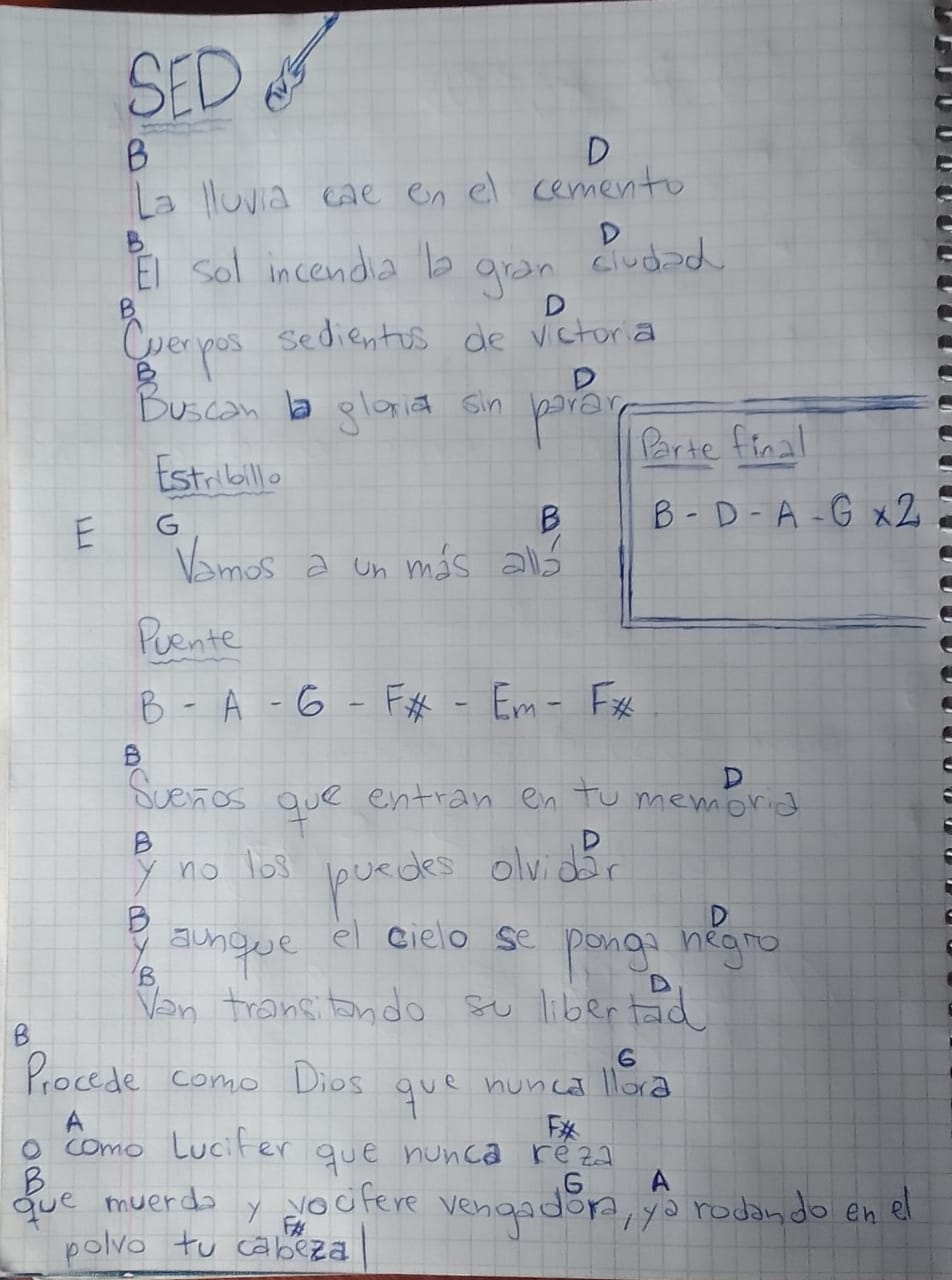 SED
B D
La lluvia cae en el cemento
B D
El sol incendia la gran ciudad
B D
Cuerpos sedientos de victoria
B D
Buscan la gloria sin parar
Estribillo
E G B
Vamos a un más allá
Parte final
B - D - A - G x2
Puente
B - A - G - F# - Em - F#
B D
Sueños que entran en tu memoria
B D
y no los puedes olvidar
B D
y aunque el cielo se ponga negro
B D
Van transitando su libertad
B G
Procede como Dios que nunca llora
A F#
o como Lucifer que nunca reza
B G A
que muerda y vocifere vengadora, ya rodando en el
F#
polvo tu cabeza